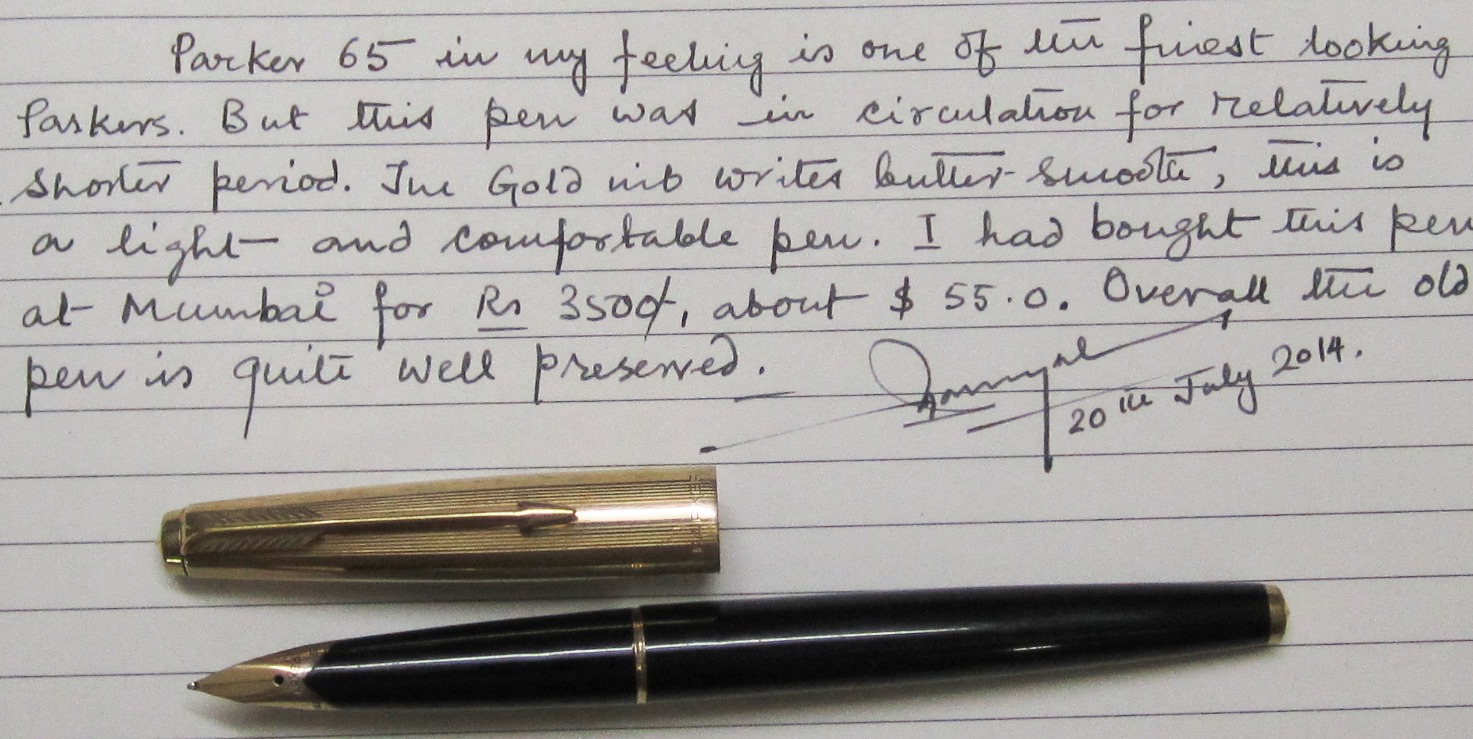 Parker 65 in my feeling is one of the finest looking
Parkers. But this pen was in circulation for relatively
shorter period. The Gold nib writes butter-smooth, this is
a light and comfortable pen. I had bought this pen
at Mumbai for Rs 3500/-, about $ 55.0. Overall the old
pen is quite well preserved.
20th July 2014.